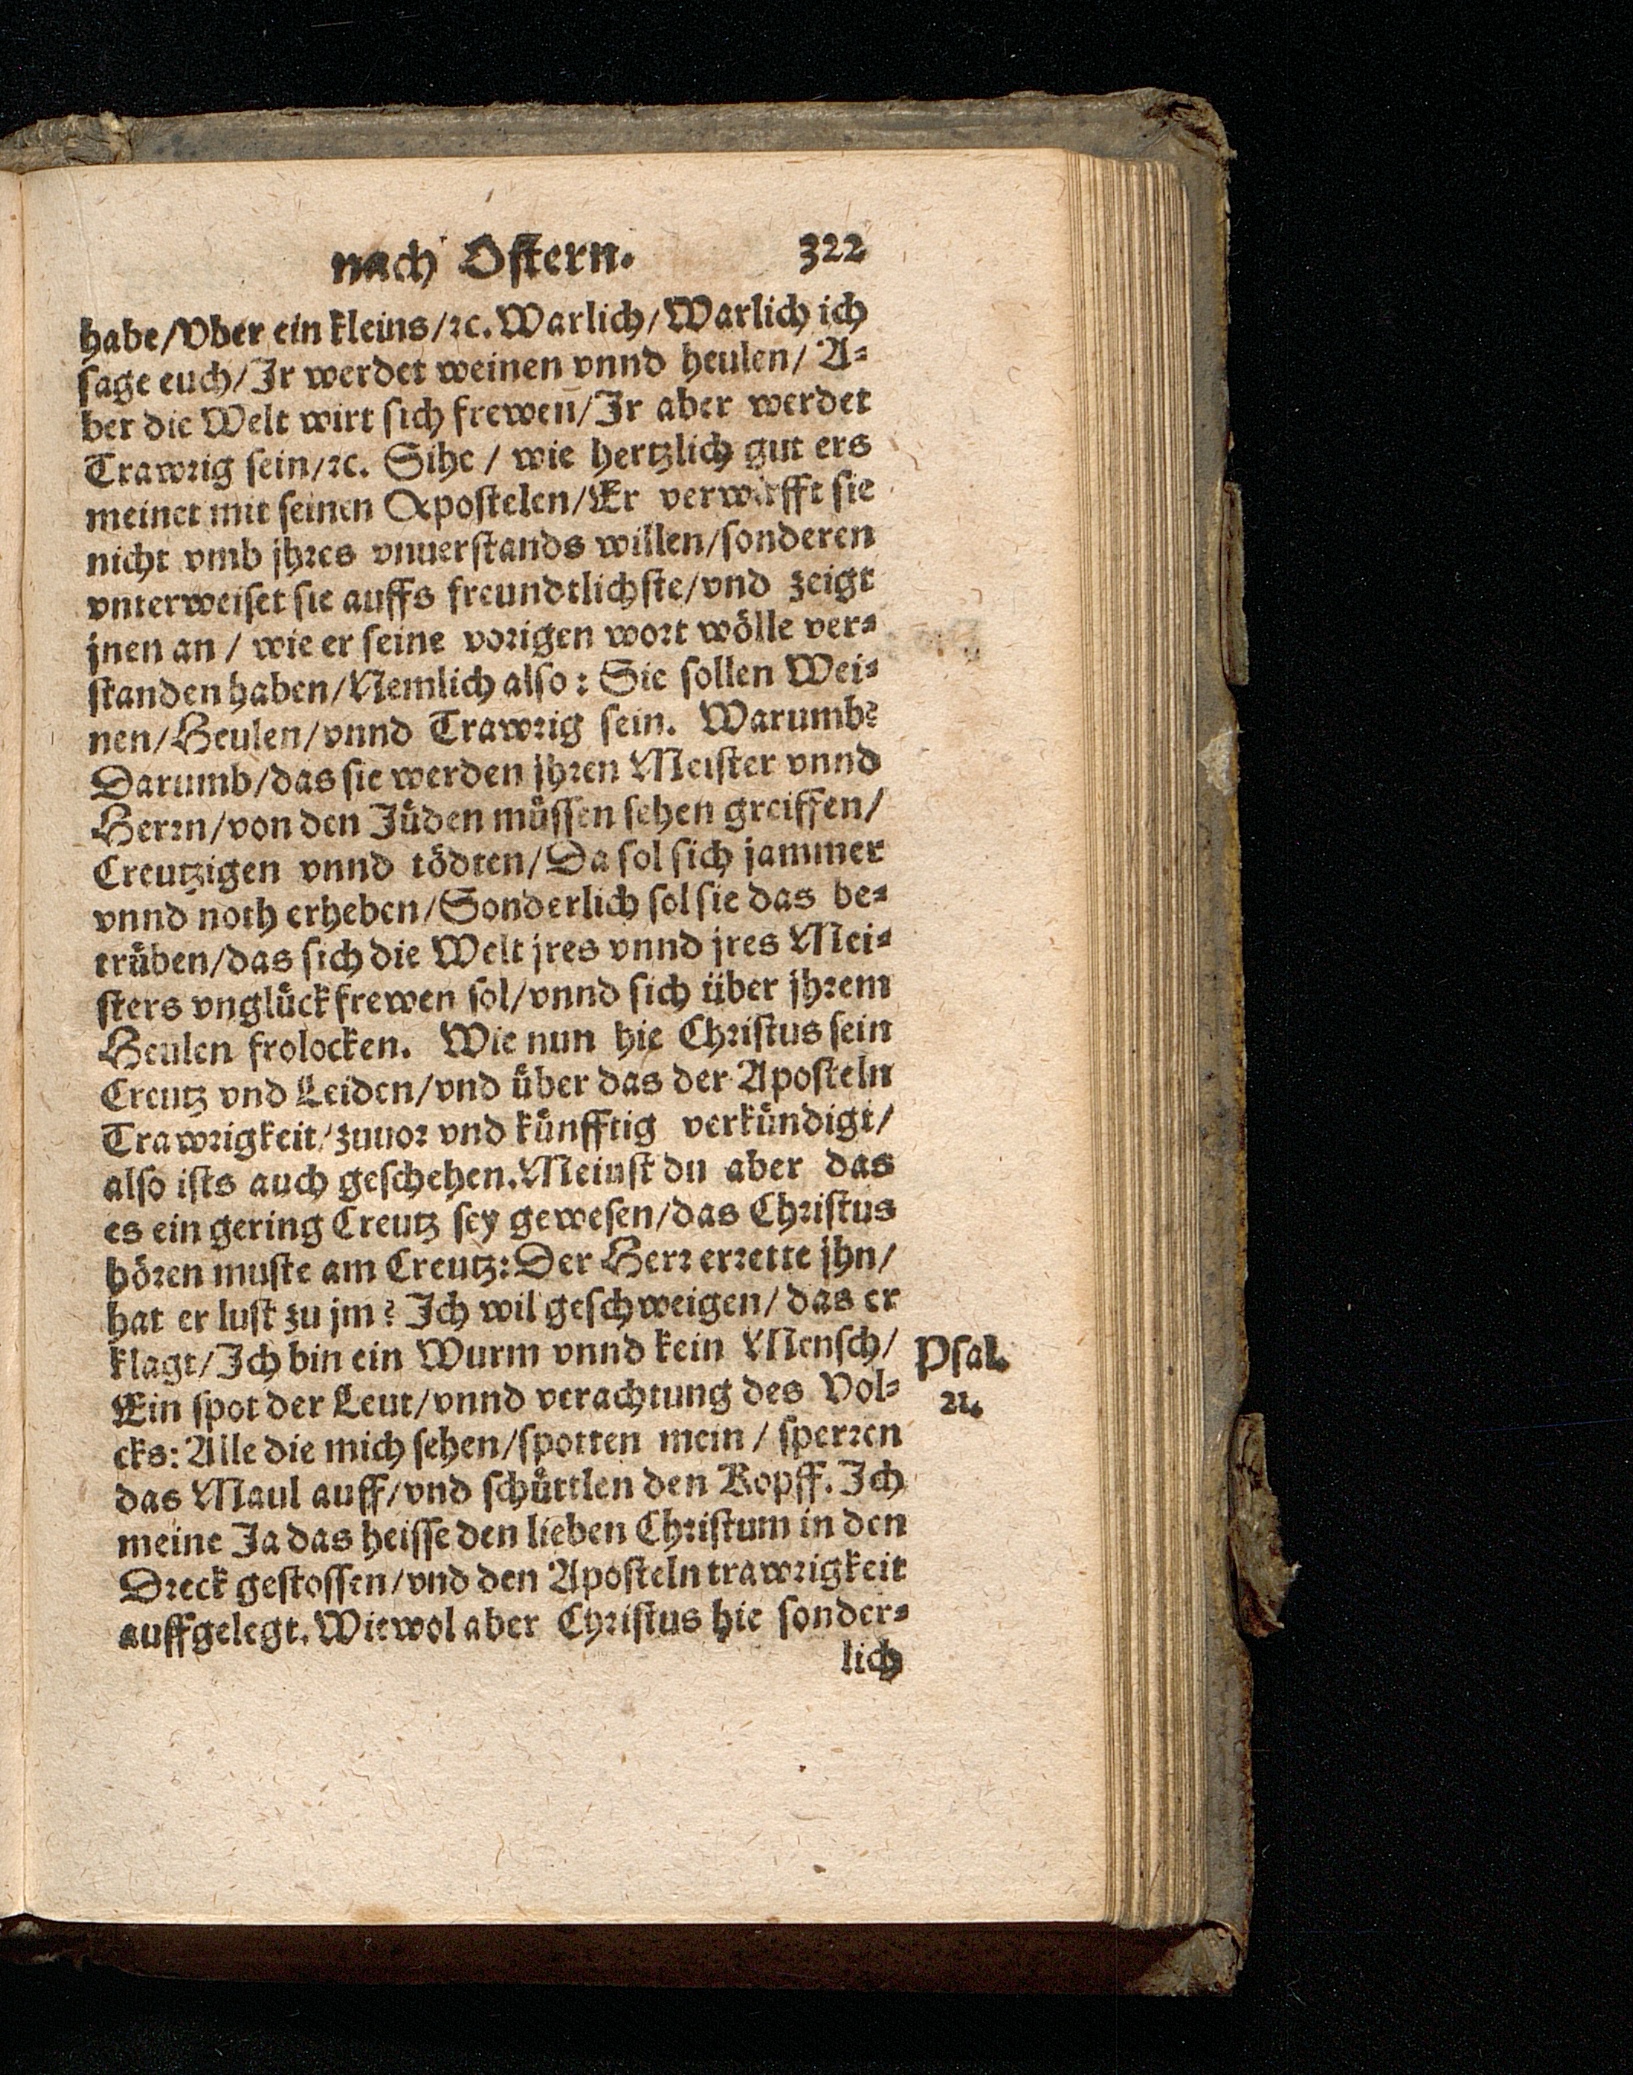 nach Oſtern. 322
habe/Vber ein kleins/ꝛc. Warlich/Warlich ich
ſage euch/Jr werdet weinen vnnd heulen/ A⸗
ber die Welt wirt ſich frewen/Jr aber werdet
Trawꝛig ſein/ꝛc. Sihe / wie hertzlich gut ers
meinet mit ſeinen Apoſtelen/Er verwirfft ſie
nicht vmb jhꝛes vnuerſtands willen/ſonderen
vnterweiſet ſie auffs freundtlichſte/vnd zeigt
jnen an / wie er ſeine voꝛigen woꝛt woͤlle ver⸗
ſtanden haben/Nemlich alſo: Sie ſollen Wei⸗
nen/Heulen/vnnd Trawꝛig ſein. Warumb?
Darumb/das ſie werden jhꝛen Meiſter vnnd
Herꝛn/von den Juͤden muͤſſen ſehen greiffen/
Creutzigen vnnd toͤdten/Da ſol ſich jammer
vnnd noth erheben/Sonderlich ſol ſie das be⸗
truͤben/das ſich die Welt jres vnnd jres Mei⸗
ſters vngluͤck frewen ſol/vnnd ſich uͤber jhꝛem
Heulen frolocken. Wie nun hie Chꝛiſtus ſein
Creutz vnd Leiden/vnd uͤber das der Apoſteln
Trawꝛigkeit/zuuoꝛ vnd kuͤnfftig verkuͤndigt/
alſo iſts auch geſchehen. Meinſt du aber das
es ein gering Creutz ſey geweſen/das Chꝛiſtus
hoͤꝛen muſte am Creutz: Der Herꝛ erꝛette jhn/
hat er luſt zu jm? Jch wil geſchweigen/das er
klagt/Jch bin ein Wurm vnnd kein Menſch/
Psal.
Ein ſpot der Leut/vnnd verachtung des Vol⸗
21.
cks: Alle die mich ſehen/ſpotten mein / ſperꝛen
das Maul auff/vnd ſchuͤttlen den Kopff. Jch
meine Ja das heiſſe den lieben Chꝛiſtum in den
Dꝛeck geſtoſſen/vnd den Apoſteln trawꝛigkeit
auffgelegt. Wiewol aber Chꝛiſtus hie ſonder⸗
lich